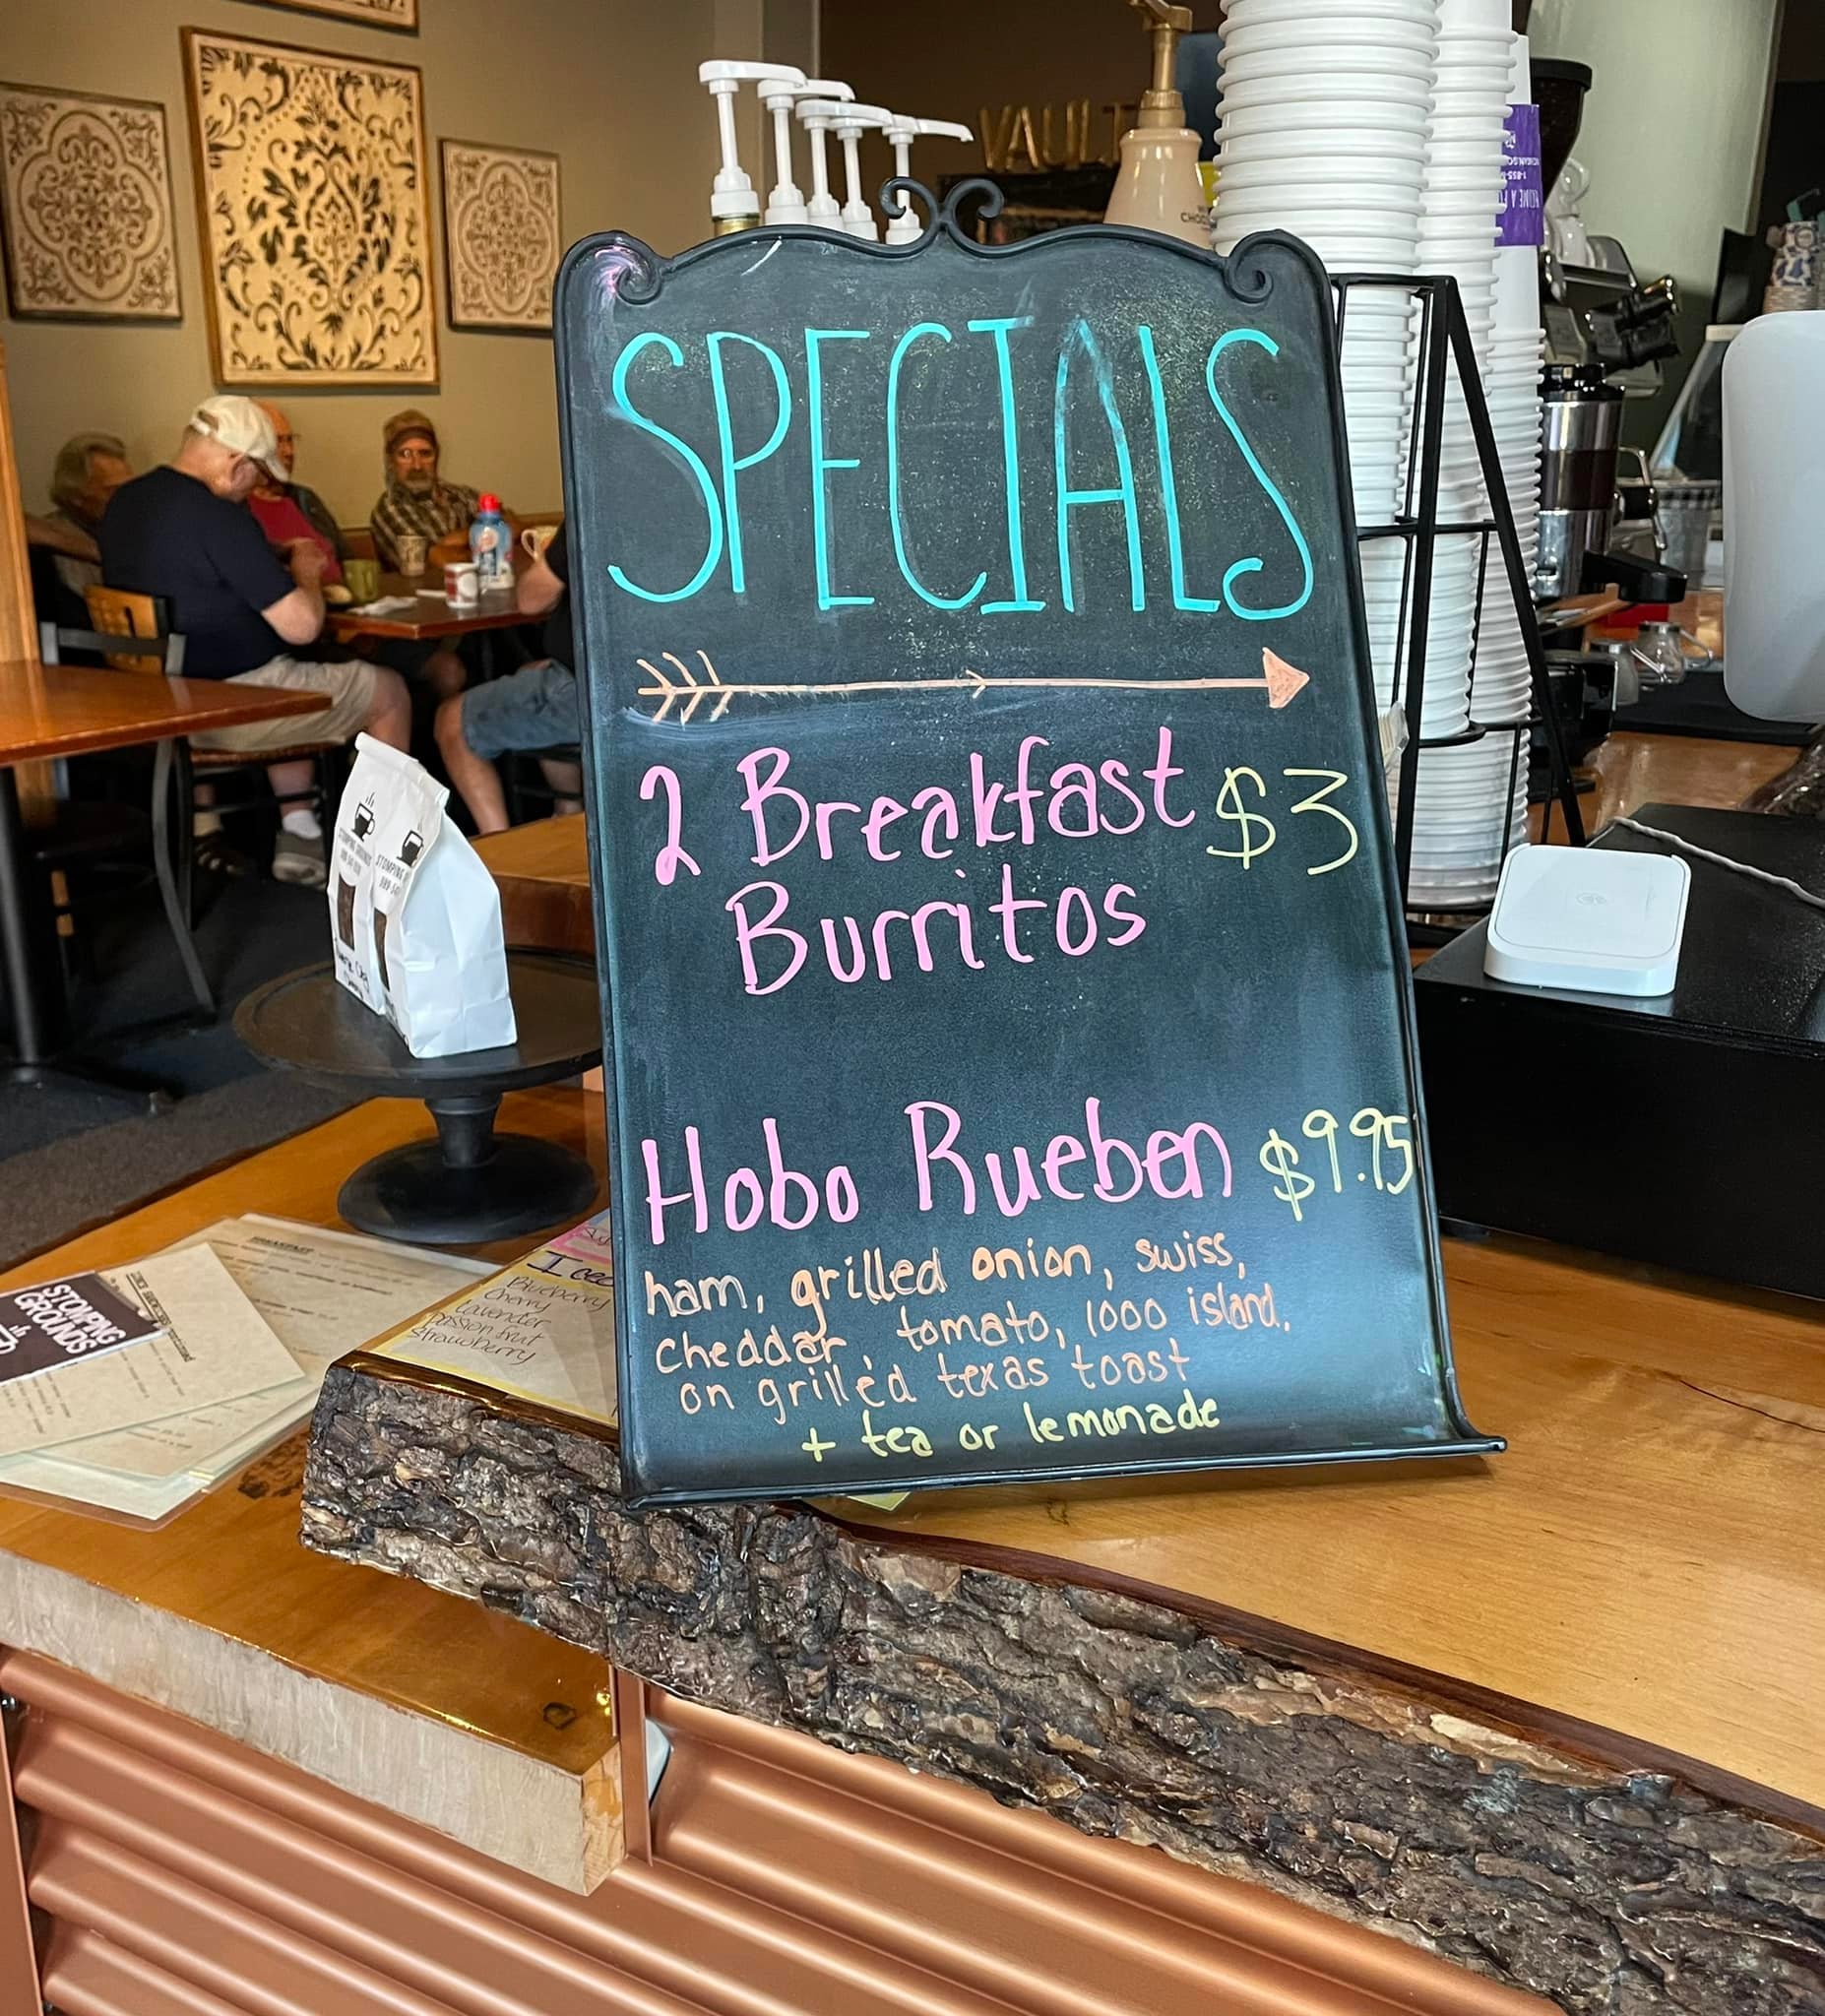 VAULT
SPECIALS
2 Breakfast $3
Burritos
Hobo Rueben $9.95
ham, grilled onion, swiss,
cheddar, tomato, 1000 island,
on grilled texas toast
+ tea or lemonade
STOMPING GROUNDS
STOMPING
STOMPING
GROUNDS
BREAKFAST
Iced
Blueberry
Cherry
Lavender
Passion fruit
Strawberry